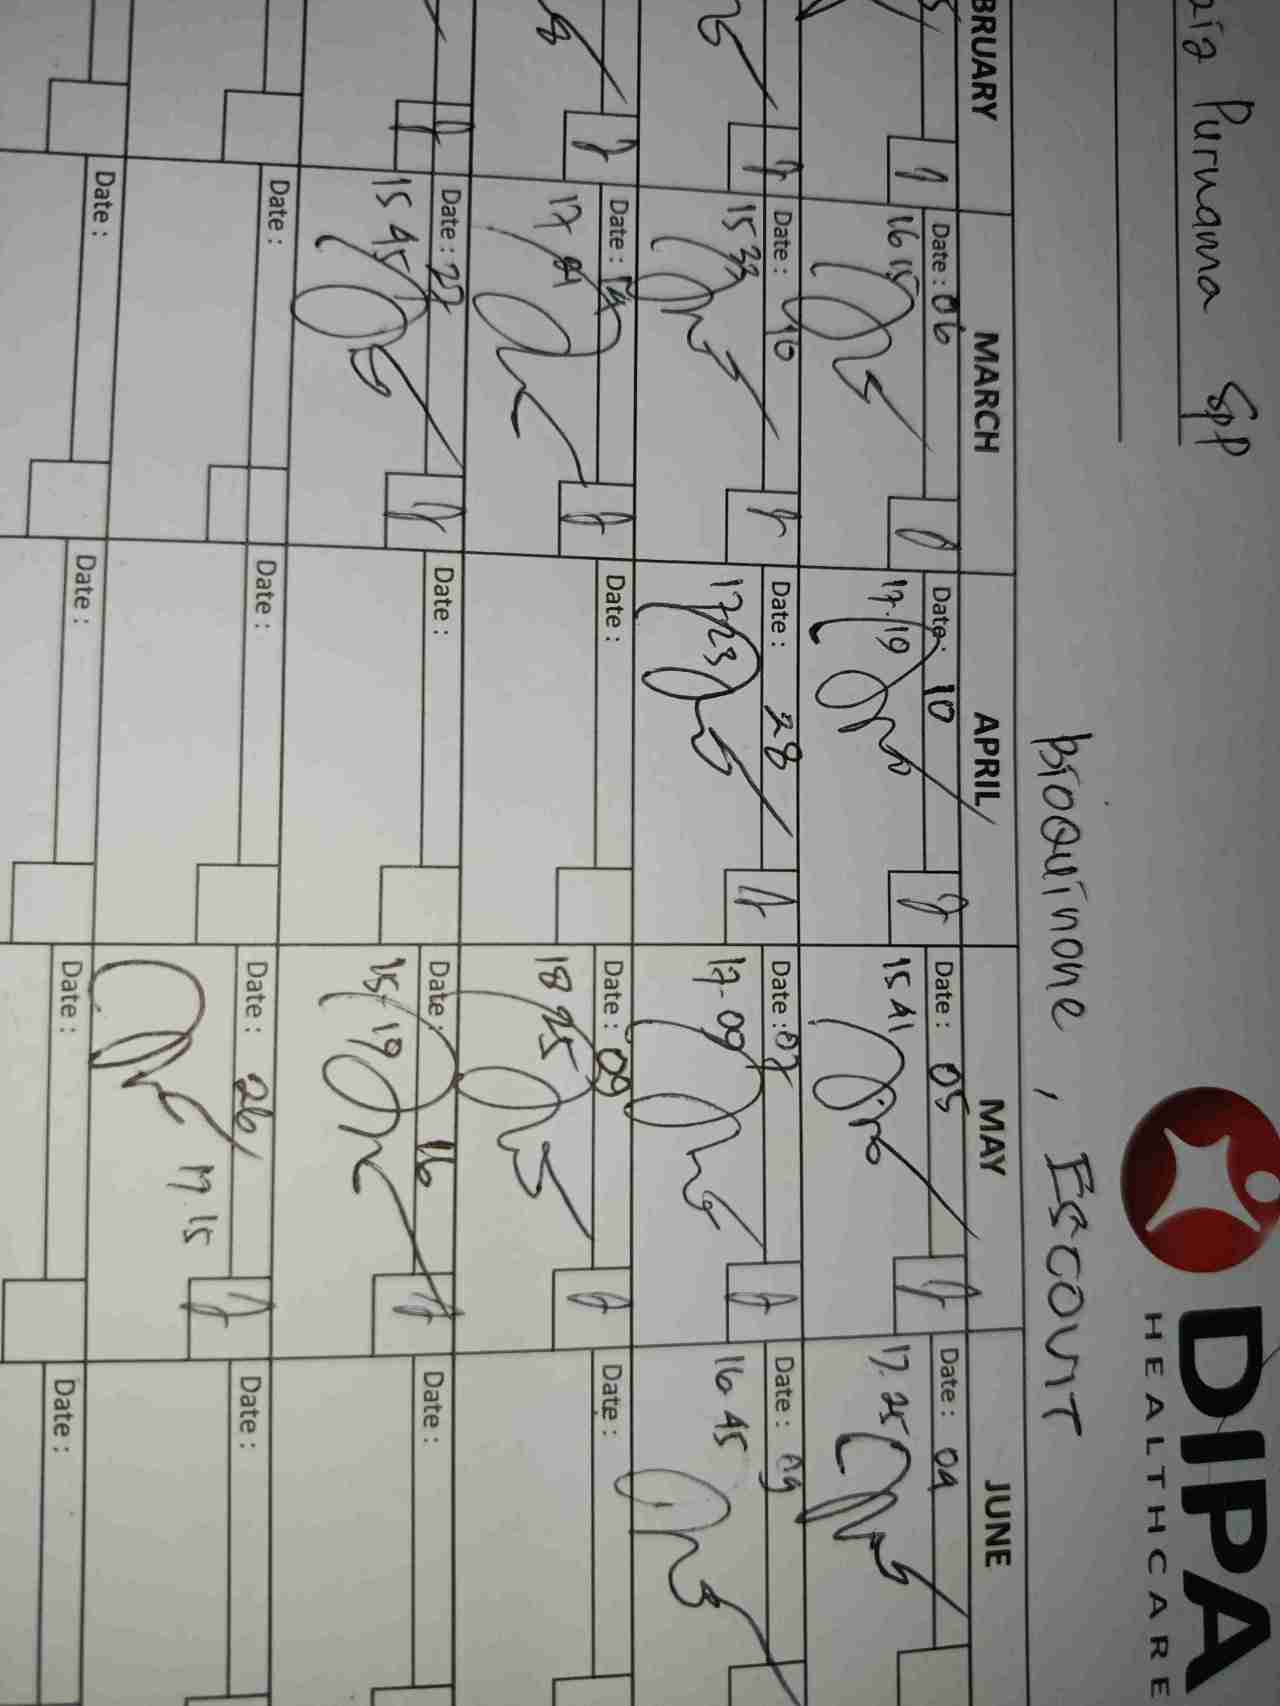 Purnama SpP
DIPA
HEALTHCARE
BioQuinone, Escovit
BRUARY MARCH APRIL MAY JUNE
Date : 06 Date : 10 Date : 05 Date : 04
16 15 17.19 15 41 17.25
Date : 10 Date : 28 Date : 07 Date : 09
15 33 17 23 17.09 16 45
Date : 14 Date : Date : 09 Date :
17 18 25
Date : 27 Date : Date : 16 Date :
15 45 15.19
Date : Date : Date : 26 Date :
17.15
Date : Date : Date : Date :